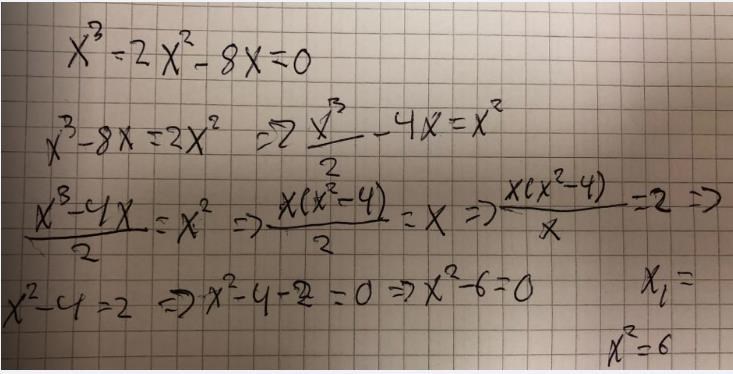 x³ - 2x² - 8x = 0
x³ - 8x = 2x² => x³/2 - 4x = x²
x³ - 4x/2 = x² => x(x² - 4)/2 = x => x(x² - 4)/x = 2 =>
x² - 4 = 2 => x² - 4 - 2 = 0 => x² - 6 = 0 x₁ =
x² = 6